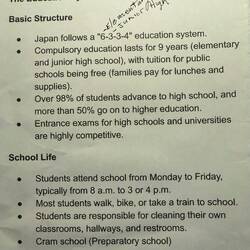 Basic Structure
elementary
Junior/High
• Japan follows a "6-3-3-4" education system.
• Compulsory education lasts for 9 years (elementary
and junior high school), with tuition for public
schools being free (families pay for lunches and
supplies).
• Over 98% of students advance to high school, and
more than 50% go on to higher education.
• Entrance exams for high schools and universities
are highly competitive.
School Life
• Students attend school from Monday to Friday,
typically from 8 a.m. to 3 or 4 p.m.
• Most students walk, bike, or take a train to school.
• Students are responsible for cleaning their own
classrooms, hallways, and restrooms.
• Cram school (Preparatory school)